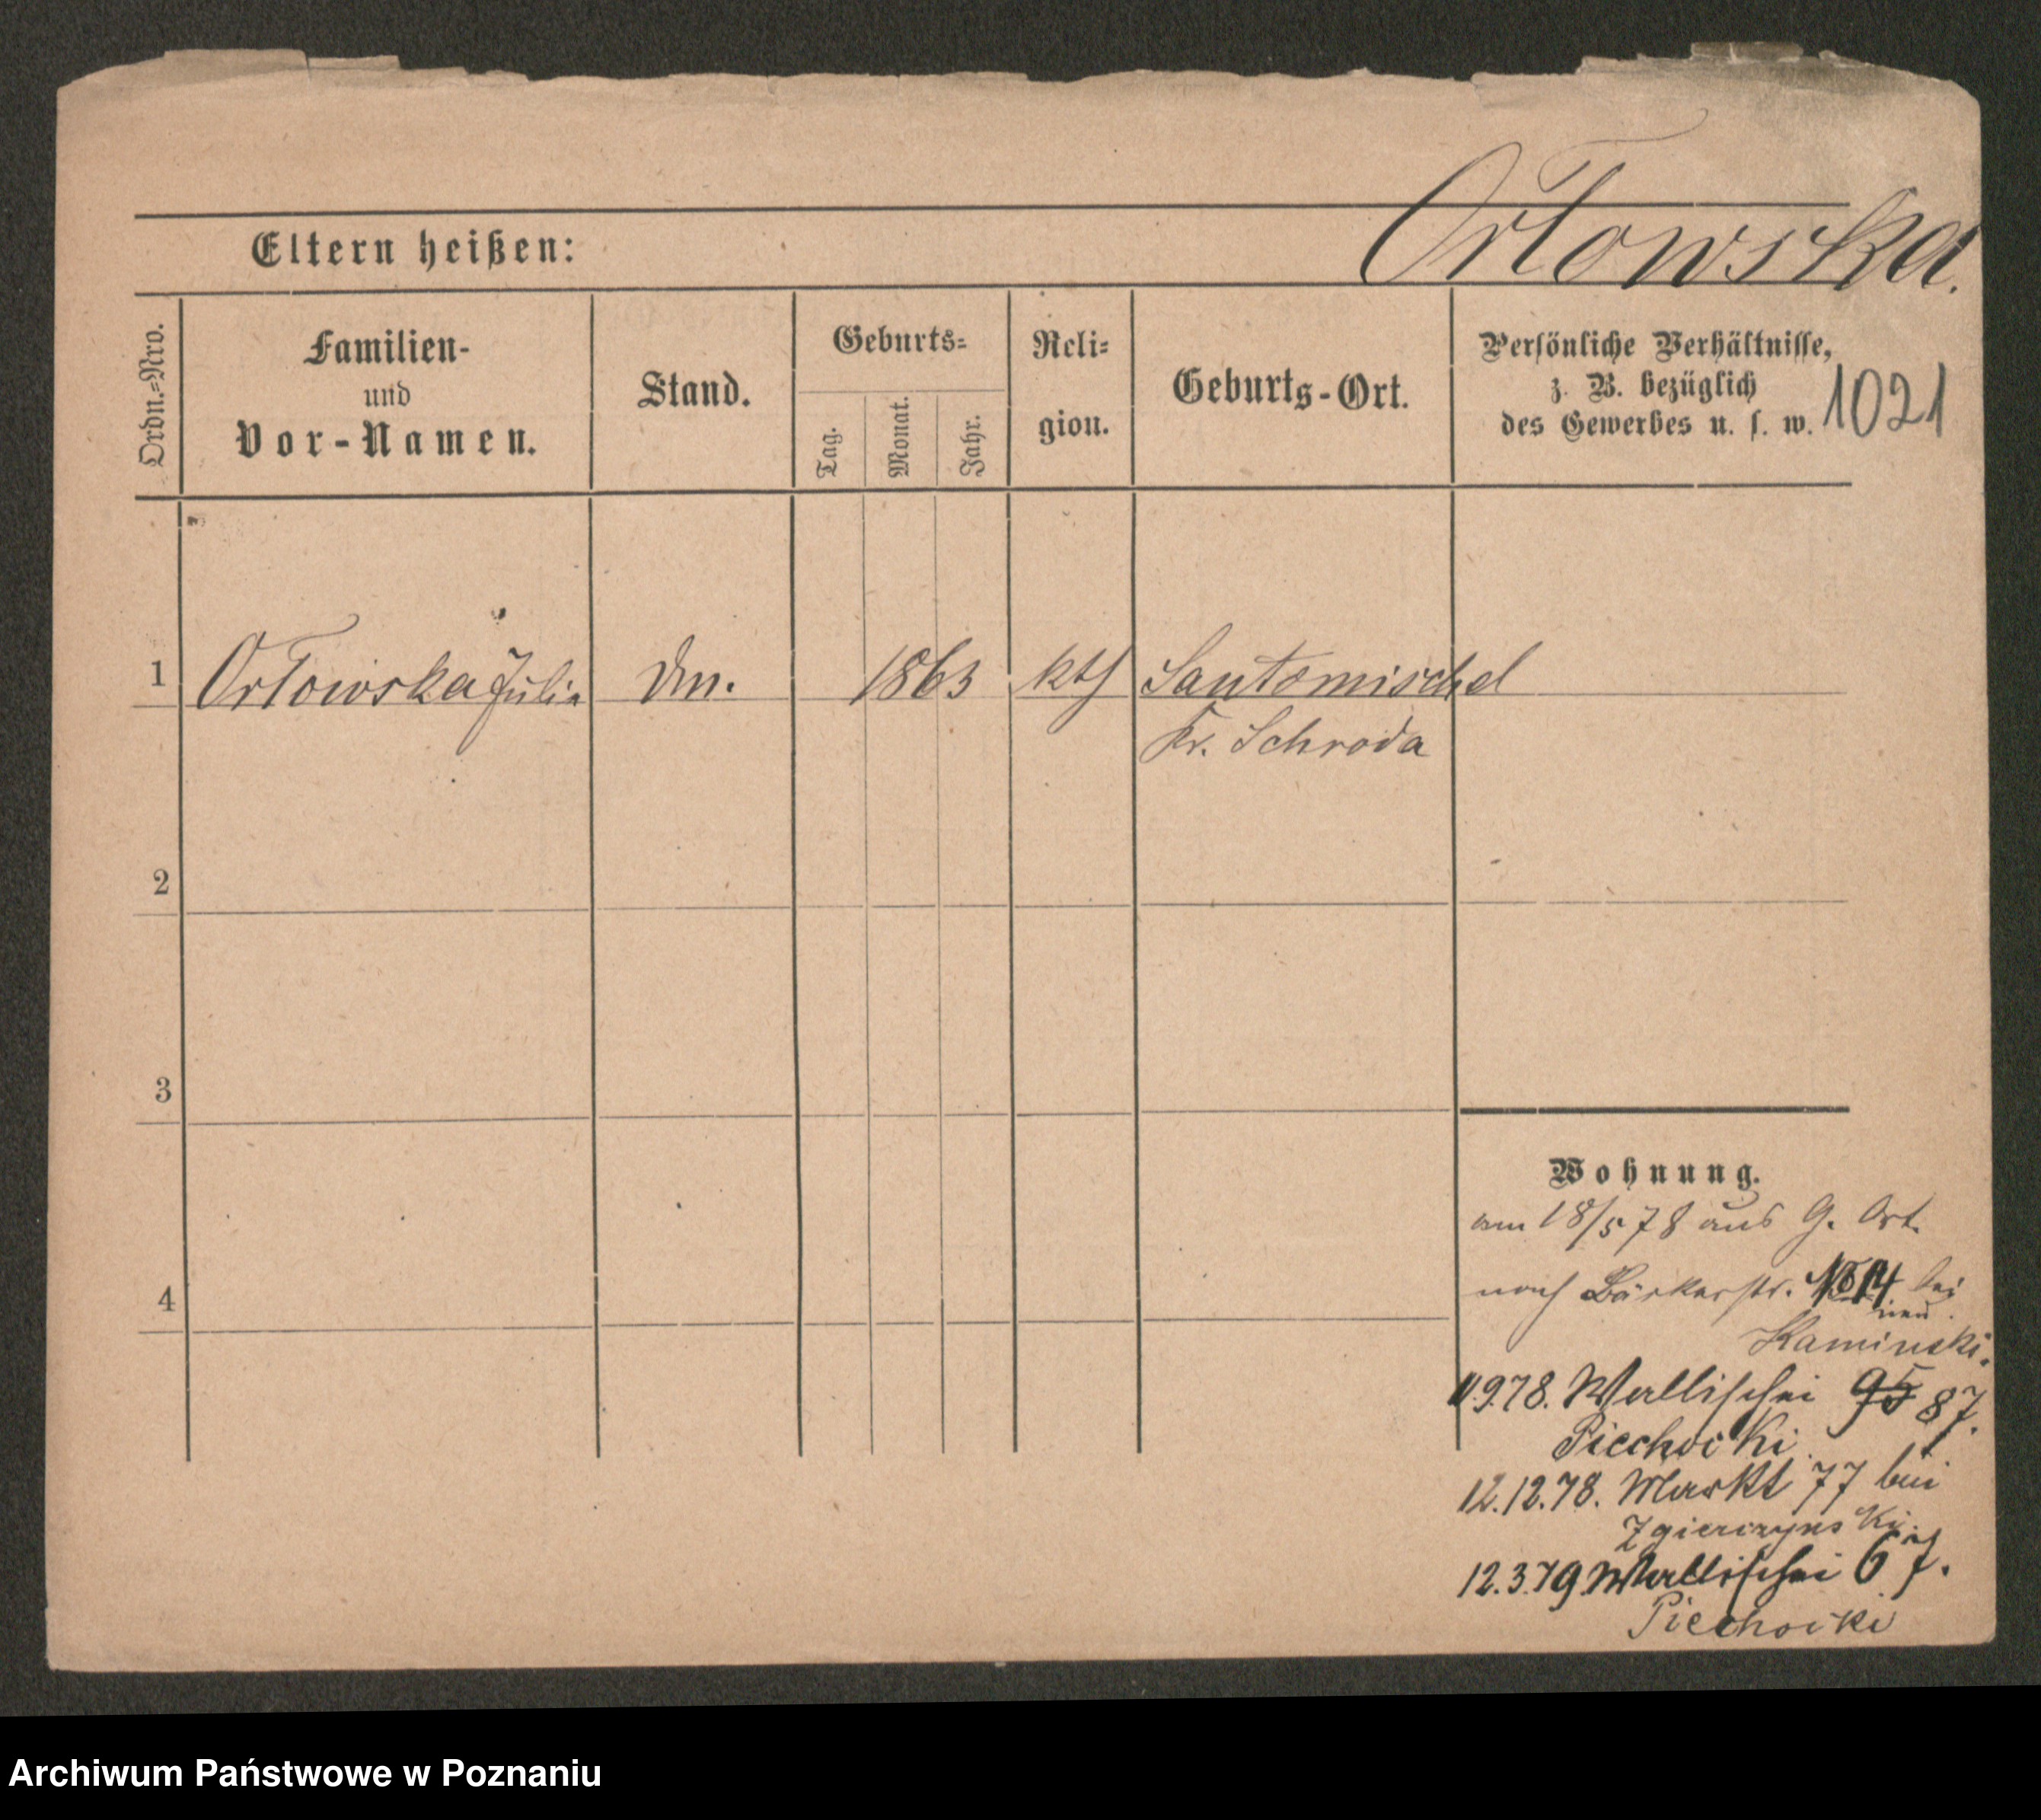 Orłowska.
Eltern heißen:
Ordn.=Nro.
Familien-
und
Vor-Namen.
Stand.
Geburts=
Tag.
Monat.
Jahr.
Reli=
gion.
Geburts-Ort.
Persönliche Verhältnisse,
z. B. bezüglich
des Gewerbes u. s. w.
1021
1 Orłowska Julia 1863 kth Santomischel
Kr. Schroda
2
3
4
Wohnung.
am 18/5 78 aus G. Ort.
nach Bäckerstr. bei
Kaminski.
11.9.78. Wallischei 95 87.
Piechocki
12.12.78. Markt 77 bei
Zgierczynski.
12.3.79 Wallischei 67.
Piechocki
Archiwum Państwowe w Poznaniu